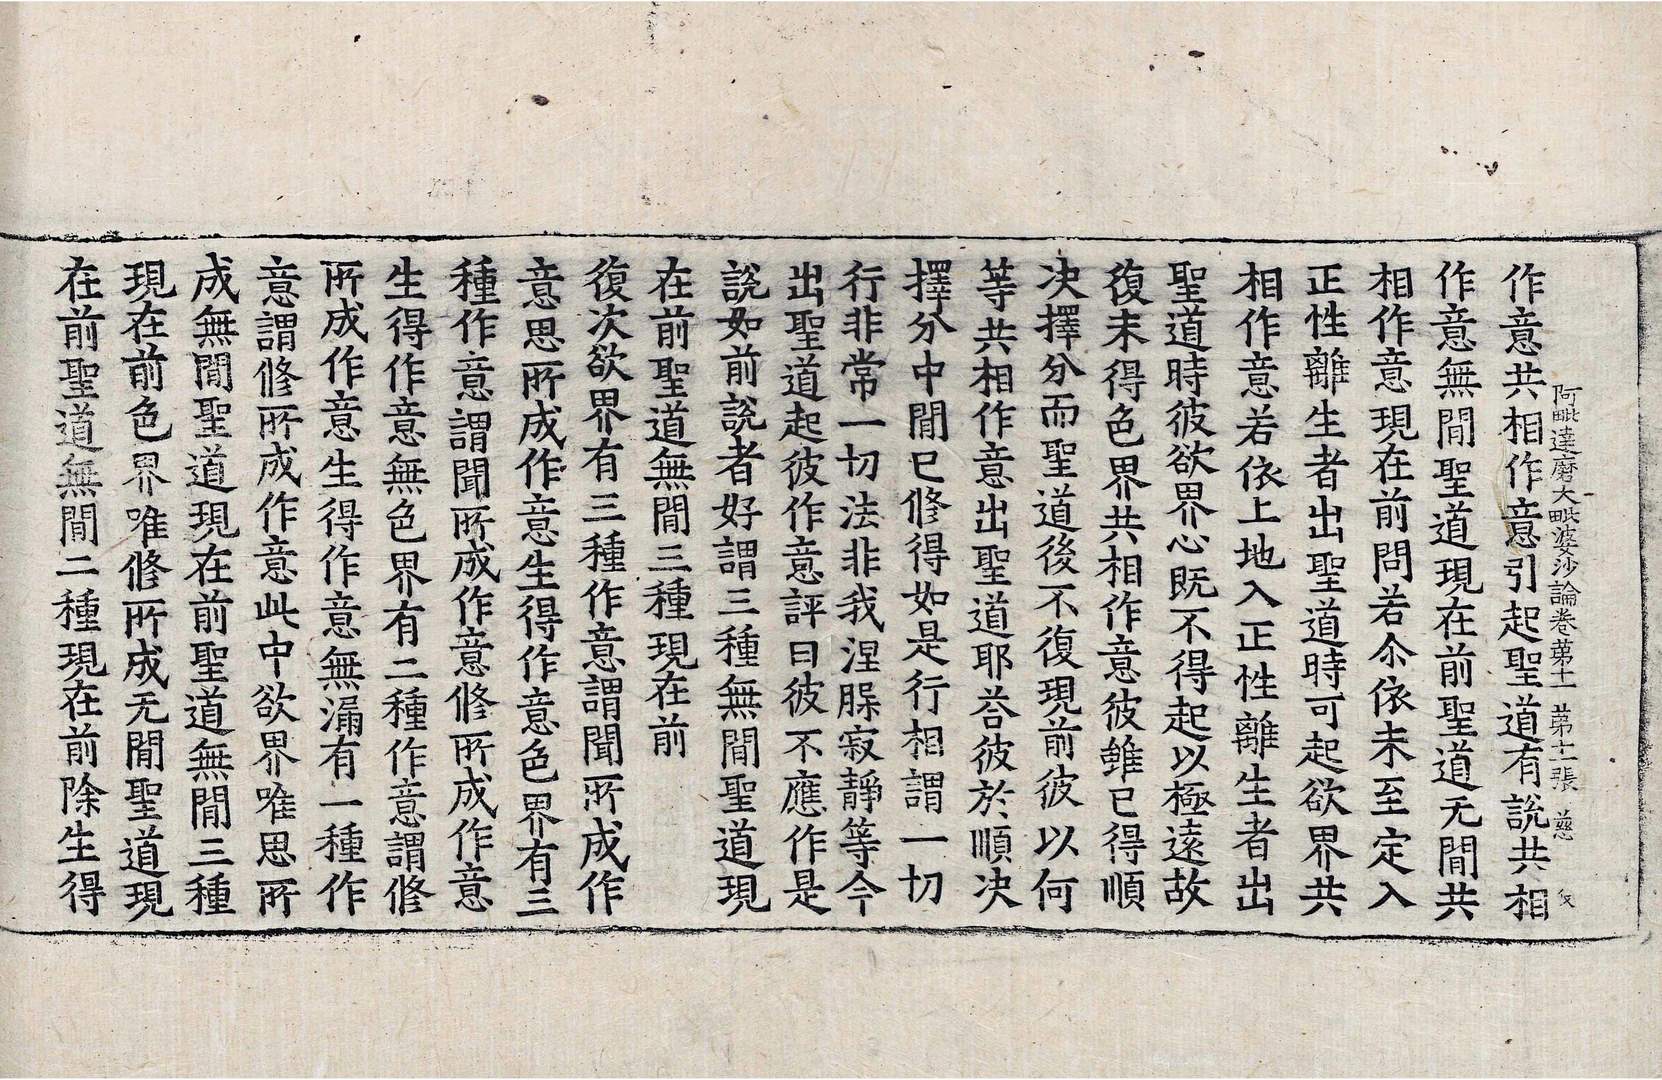 阿毗達磨大毗婆沙論卷第十一　第十二張　慈
作意共相作意引起聖道有說共相
作意無間聖道現在前聖道无間共
相作意現在前問若尒依未至定入
正性離生者出聖道時可起欲界共
相作意若依上地入正性離生者出
聖道時彼欲界心既不得起以極遠故
復未得色界共相作意彼雖已得順
决擇分而聖道後不復現前彼以何
等共相作意出聖道耶荅彼於順决
擇分中間已修得如是行相謂一切
行非常一切法非我涅脲寂靜等今
出聖道起彼作意評曰彼不應作是
說如前說者好謂三種無間聖道現
在前聖道無間三種現在前
復次欲界有三種作意謂聞所成作
意思所成作意生得作意色界有三
種作意謂聞所成作意修所成作意
生得作意無色界有二種作意謂修
所成作意生得作意無漏有一種作
意謂修所成作意此中欲界唯思所
成無間聖道現在前聖道無間三種
現在前色界唯修所成无間聖道現
在前聖道無間二種現在前除生得